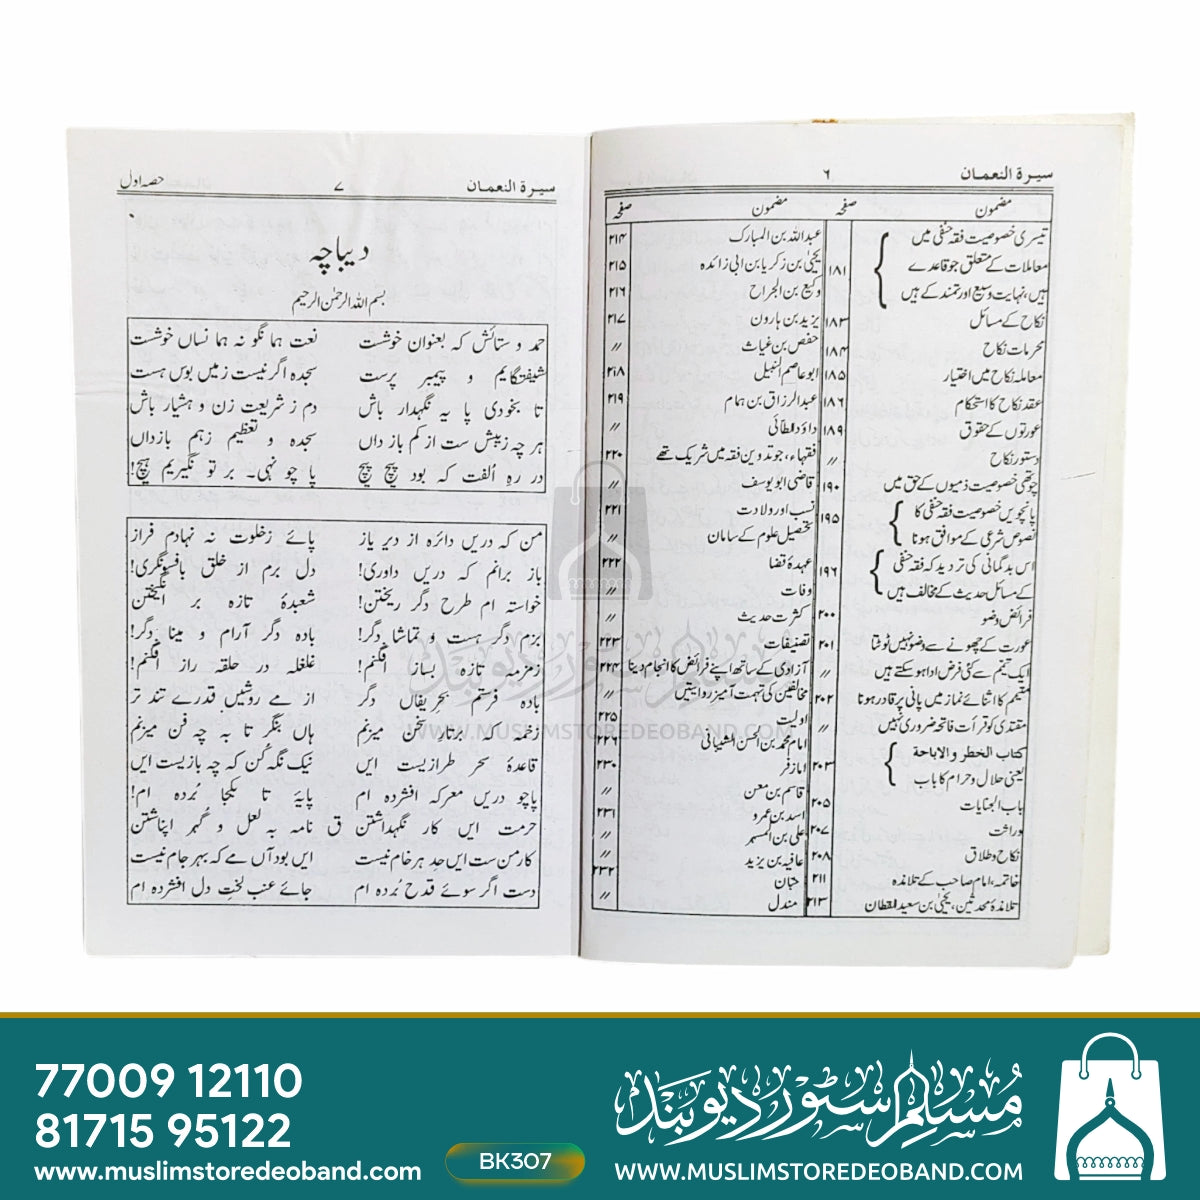 سیرۃ النعمان ۶
مضمون صفحہ مضمون صفحہ
تیسری خصوصیت فقہ حنفی میں
معاملات کے متعلق جو قاعدے ۱۸۱
ہیں، نہایت وسیع اور تمدن کے ہیں
نکاح کے مسائل ۱۸۳
محرمات نکاح ۱۸۴
معاملہ نکاح میں اختیار ۱۸۵
عقد نکاح کا استحکام ۱۸۶
عورتوں کے حقوق ۱۸۹
دستور نکاح 〃
چوتھی خصوصیت ذمیوں کے حق میں ۱۹۰
پانچویں خصوصیت فقہ حنفی کا
نصوص شرعی کے موافق ہونا ۱۹۵
اس بدگمانی کی تردید کہ فقہ حنفی
کے مسائل حدیث کے مخالف ہیں ۱۹۶
فرائض وضو ۲۰۰
عورت کے چھونے سے وضو نہیں ٹوٹتا ۲۰۱
ایک تیمم سے کئی فرض ادا ہو سکتے ہیں 〃
متیمم کا اثنائے نماز میں پانی پر قادر ہونا ۲۰۲
مقتدی کو قرأت فاتحہ ضروری نہیں 〃
کتاب الحظر والاباحۃ
یعنی حلال و حرام کا باب ۲۰۳
باب الجنایات ۲۰۵
وراثت ۲۰۷
نکاح و طلاق ۲۰۸
خاتمہ، امام صاحب کے تلامذہ ۲۱۱
تلامذۂ محدثین، یحییٰ بن سعید القطان ۲۱۳
عبداللہ بن المبارک ۲۱۴
یحییٰ بن زکریا بن ابی زائدہ ۲۱۵
وکیع بن الجراح ۲۱۶
یزید بن ہارون ۲۱۷
حفص بن غیاث 〃
ابو عاصم النبیل ۲۱۸
عبدالرزاق بن ہمام ۲۱۹
داؤد الطائی 〃
فقہاء، جو تدوین فقہ میں شریک تھے ۲۲۰
قاضی ابو یوسف 〃
نسب اور ولادت ۲۲۱
تحصیل علوم کے سامان 〃
عہدۂ قضا ۲۲۲
وفات 〃
کثرت حدیث
تصنیفات ۲۲۳
آزادی کے ساتھ اپنے فرائض کا انجام دینا ۲۲۴
مخالفین کی تہمت آمیز روایتیں 〃
اولیت ۲۲۵
امام محمد بن الحسن الشیبانی ۲۲۶
امام زفر ۲۳۰
قاسم بن معن 〃
اسد بن عمرو ۲۳۱
علی بن المسہر 〃
عافیہ بن یزید 〃
حبان ۲۳۲
مندل 〃
سیرۃ النعمان ۷ حصہ اول
دیباچہ
بسم اللہ الرحمٰن الرحیم
حمد و ستائش کہ بعنوان خوشت نعت ہما نگو نہ ہما نساں خوشت
شیفتگایم و پیمبر پرست سجدہ اگر نیست زمیں بوس ہست
تا بخودی پا یہ نگہدار باش دم ز شریعت زن و ہشیار باش
ہر چہ ز پیش ست از کم باز داں سجدہ و تعظیم زہم بازداں
در رہِ اُلفت کہ بود پیچ پیچ پا چو نہی۔ بر تو نگیریم ہیچ!
من کہ دریں دائرہ از دیر یاز پائے زخلوت نہ نہادم فراز
باز برانم کہ دریں داوری! دل برم از خلق بافسونگری!
خواستہ ام طرح دگر ریختن! شعبدۂ تازہ بر انگیختن
بزم دگر ہست و تماشا دگر! بادہ دگر آرام و مینا دگر!
زمزمہ تازہ بساز افگنم! غلغلہ در حلقہ راز افگنم!
بادہ فرستم بحریفاں دگر از مے روشیں قدرے تند تر
زخمہ بر تار سخن میزنم ہاں بنگر تا بہ چہ فن میزنم
قاعدۂ سحر طرازیست ایں نیک نگہ کن کہ چہ بازیست ایں
پاچو دریں معرکہ افشردہ ام پایۂ تا بکجا بُردہ ام!
حرمت ایں کار نگہداشتن ق نامہ بہ لعل و گہر انباشتن
کار من ست ایں حد ہر خام نیست ایں بود آں مے کہ بہر جام نیست
دست اگر سوئے قدح بُردہ ام جائے عنب لختِ دل افشردہ ام
مسلم سٹور دیوبند
WWW.MUSLIMSTOREDEOBAND.COM
77009 12110
81715 95122
www.muslimstoredeoband.com
BK307
مسلم سٹور دیوبند
WWW.MUSLIMSTOREDEOBAND.COM